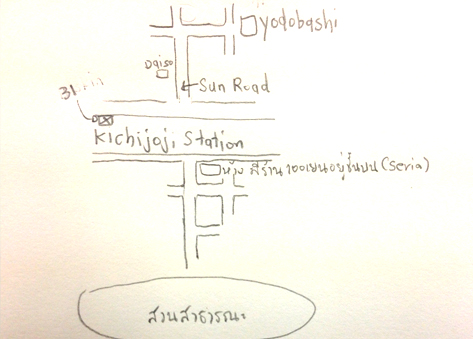 yodobashi
Daiso
Sun Road
Kichijoji Station
ห้าง มีร้าน 100 เยนอยู่ชั้นบน (Seria)
สวนสาธารณะ